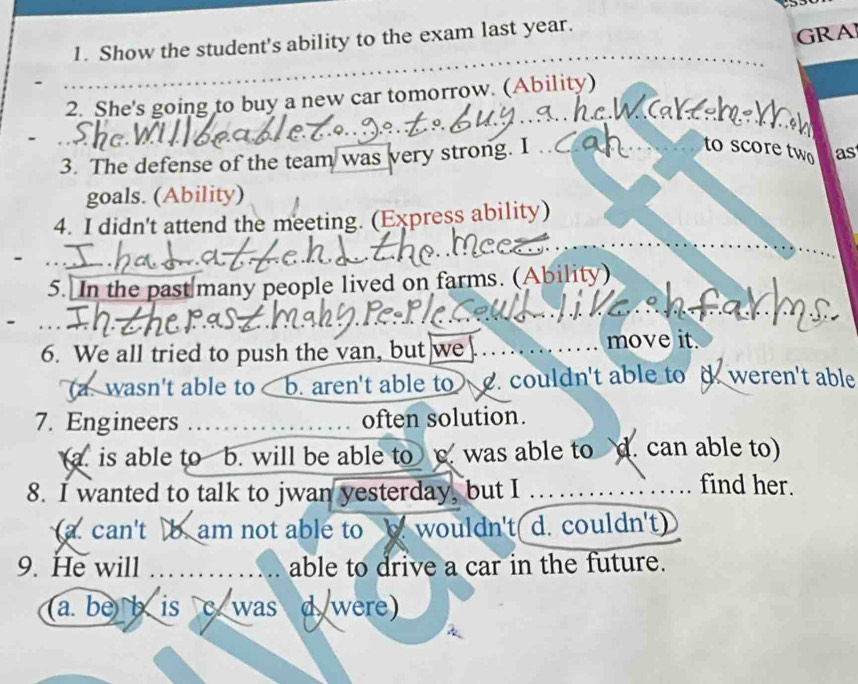 GRA
1. Show the student's ability to the exam last year.
2. She's going to buy a new car tomorrow. (Ability)
- She will be able to go to buy a new car tomorrow
3. The defense of the team was very strong. I can to score two
as
goals. (Ability)
4. I didn't attend the meeting. (Express ability)
- I had attend the meet
5. In the past many people lived on farms. (Ability)
- In the past many people could live on farms.
6. We all tried to push the van, but we .............. move it.
(a. wasn't able to b. aren't able to c. couldn't able to d. weren't able
7. Engineers .................. often solution.
(a. is able to b. will be able to c. was able to d. can able to)
8. I wanted to talk to jwan yesterday, but I .................. find her.
(a. can't b. am not able to c. wouldn't d. couldn't)
9. He will .............. able to drive a car in the future.
(a. be b. is c. was d. were)
Diyar Jaff